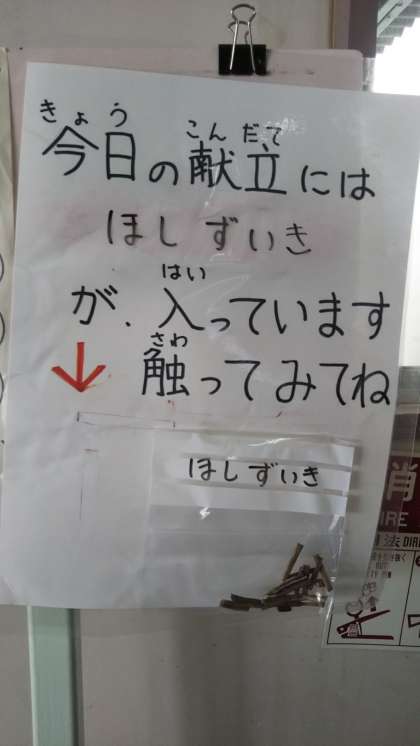 きょう こんだて
今日の献立には
ほしずいき
はい
が、入っています
さわ
触ってみてね
ほしずいき
消
IRE
法 DIRE